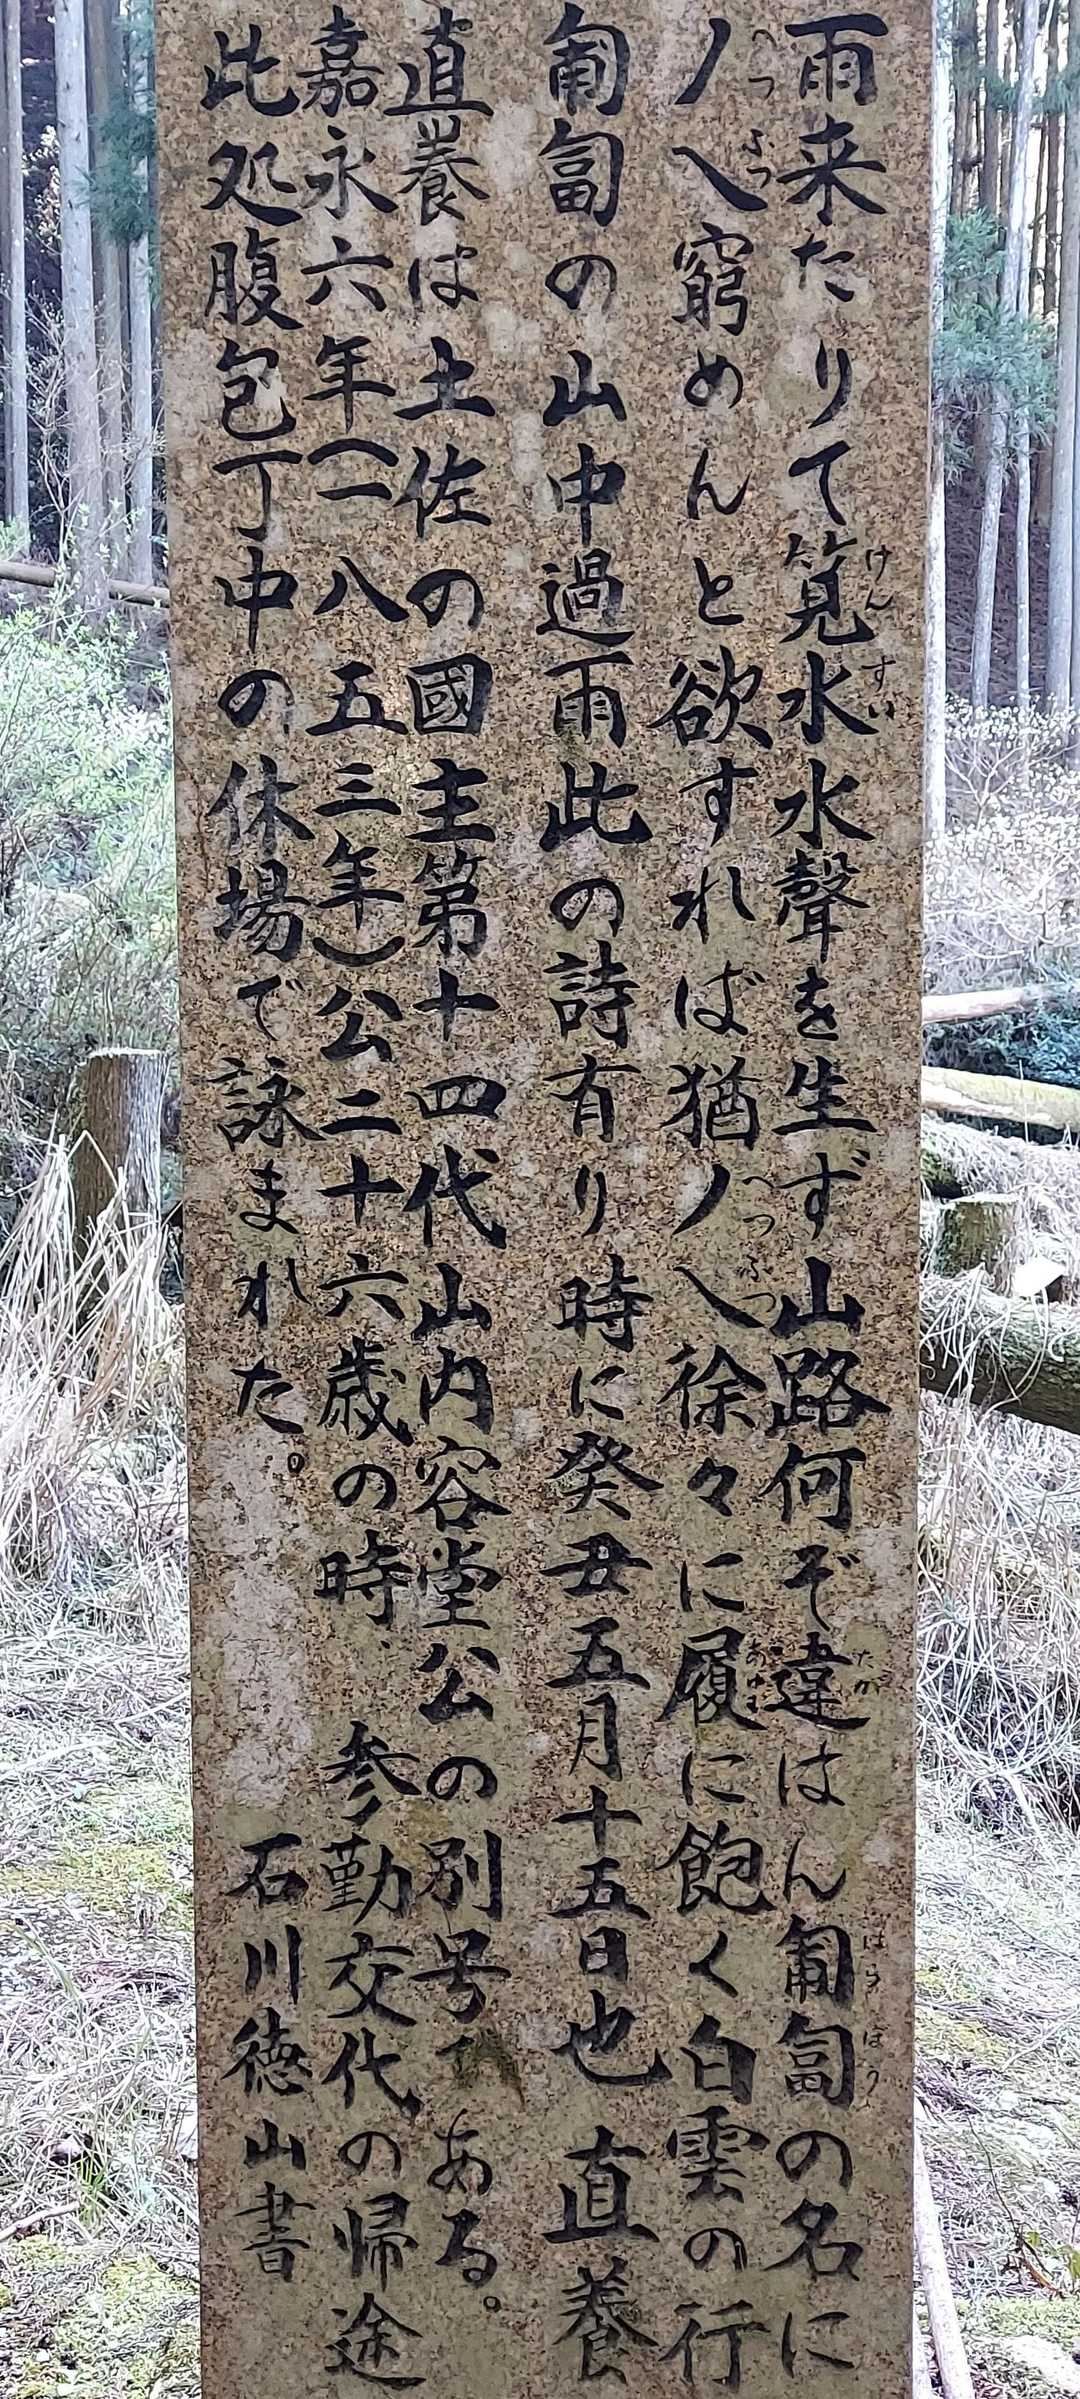 雨来たりて筧水水聲を生ず山路何ぞ違はん匍匐の名に
丿乀窮めんと欲すれば猶丿乀徐々に履に飽く白雲の行
匍匐の山中過雨此の詩有り時に癸丑五月十五日也 直養
直養は土佐の國主第十四代山内容堂公の別号である。
嘉永六年(一八五三年)公二十六歳の時、参勤交代の帰途
此処腹包丁中の休場で詠まれた。 石川徳山書